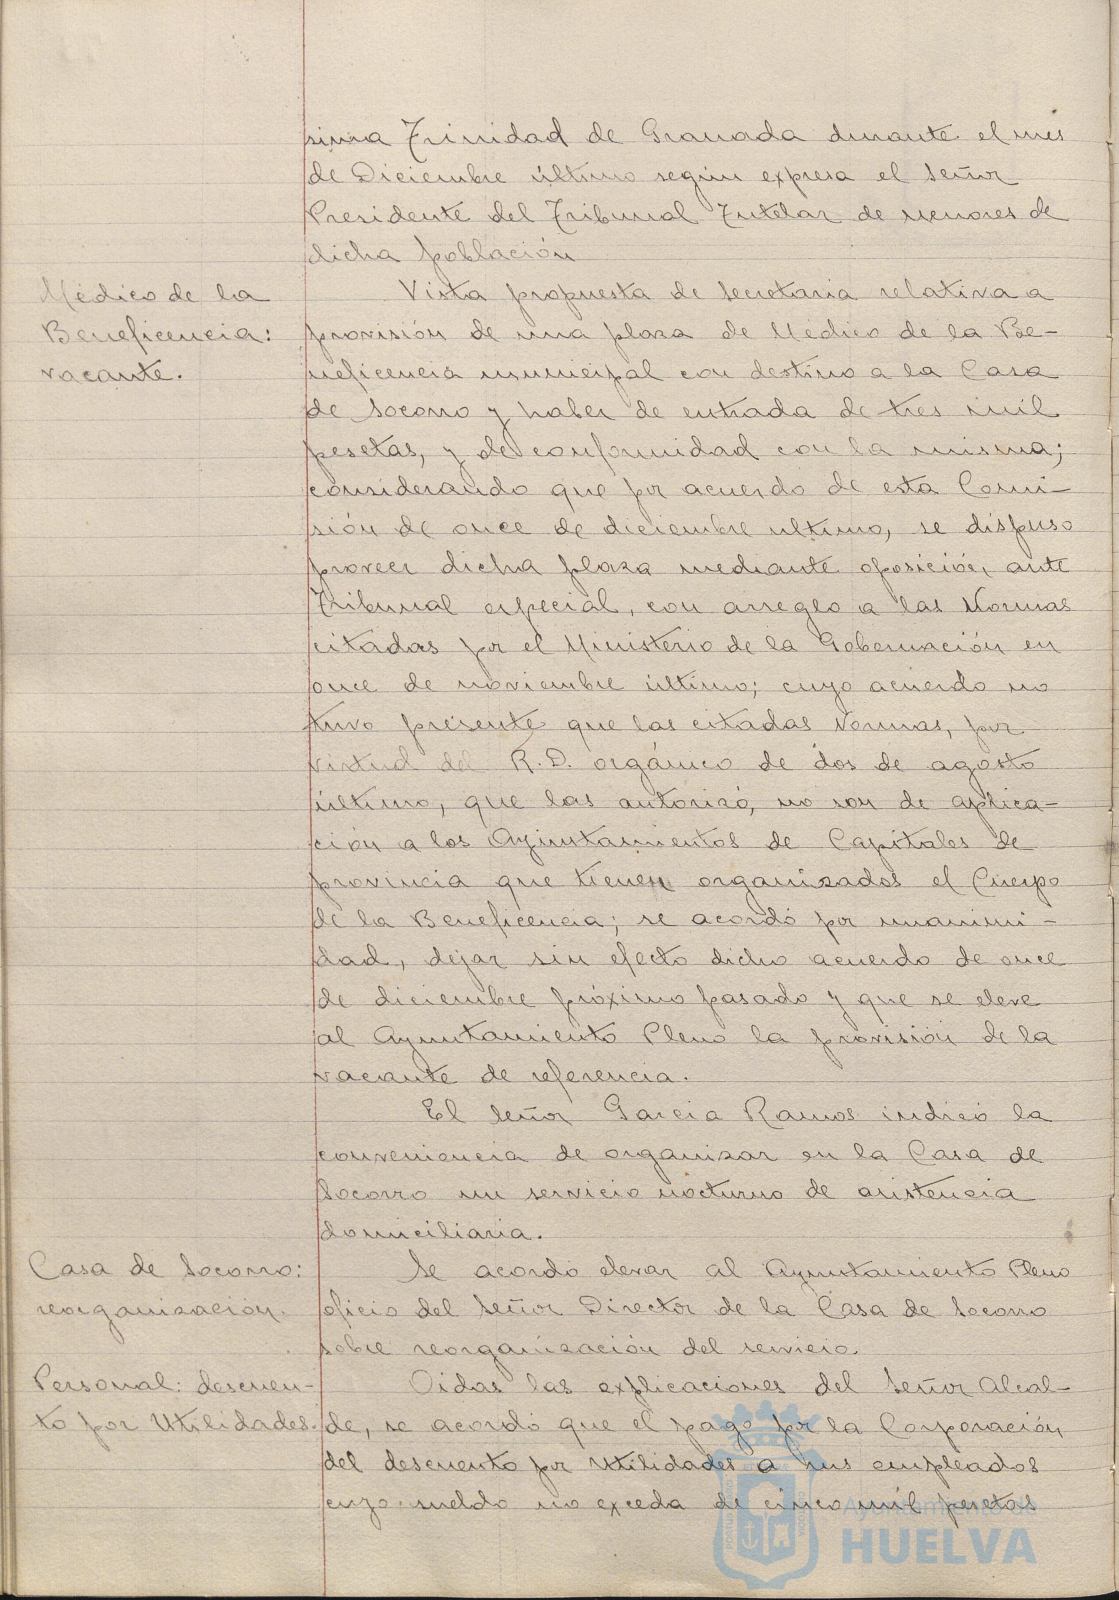 sima Trinidad de Granada durante el mes
de Diciembre último según expresa el Señor
Presidente del Tribunal Tutelar de menores de
dicha población
Médico de la
Beneficencia:
vacante.
Vista propuesta de Secretaria relativa a
provisión de una plaza de Médico de la Be-
neficencia municipal con destino a la Casa
de Socorro y haber de entrada de tres mil
pesetas, y de conformidad con la misma;
considerando que por acuerdo de esta Comi-
sión de once de diciembre ultimo, se dispuso
proveer dicha plaza mediante oposición, ante
Tribunal especial, con arreglo a las Normas
citadas por el Ministerio de la Gobernación en
once de noviembre último; cuyo acuerdo no
tuvo presente que las citadas Normas, por
virtud del R.D. orgánico de dos de agosto
último, que las autorizó, no son de aplica-
ción a los Ayuntamientos de Capitales de
provincia que tienen organizados el Cuerpo
de la Beneficencia; se acordó por unanimi-
dad, dejar sin efecto dicho acuerdo de once
de diciembre próximo pasado y que se eleve
al Ayuntamiento Pleno la provisión de la
vacante de referencia.
El Señor Garcia Ramos indicó la
conveniencia de organizar en la Casa de
Socorro un servicio nocturno de asistencia
domiciliaria.
Casa de Socorro:
reorganización.
Se acordo elevar al Ayuntamiento Pleno
oficio del Señor Director de la Casa de Socorro
sobre reorganización del servicio.
Personal: descuen-
to por Utilidades.
Oidas las explicaciones del Señor Alcal-
de, se acordó que el pago por la Corporación
del descuento por Utilidades a sus empleados
cuyo sueldo no exceda de cinco mil pesetas
Ayuntamiento de
HUELVA